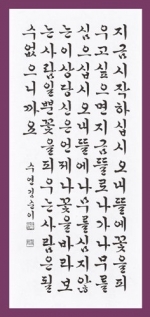 지금시작하십시오내뜰에꽃을피
우고싶으면지금뜰로나가나무를
심으십시오내뜰에나무를심지않
는이상당신은언제나꽃을바라보
는사람일뿐꽃을피우는사람은될
수없으니까요
수연김순이